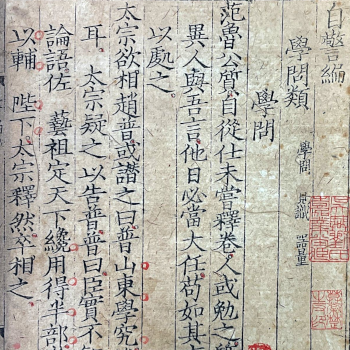 自警編
學問類 學問 見識 器量
學問
范魯公質自從仕未嘗釋卷人或勉之
異人與吾言他日必當大任苟如其
以處之
太宗欲相趙普或譖之曰普山東學究
耳 太宗疑之以告普普曰臣實不
論語佐 藝祖定天下纔用得半部
以輔 陛下太宗釋然卒相之